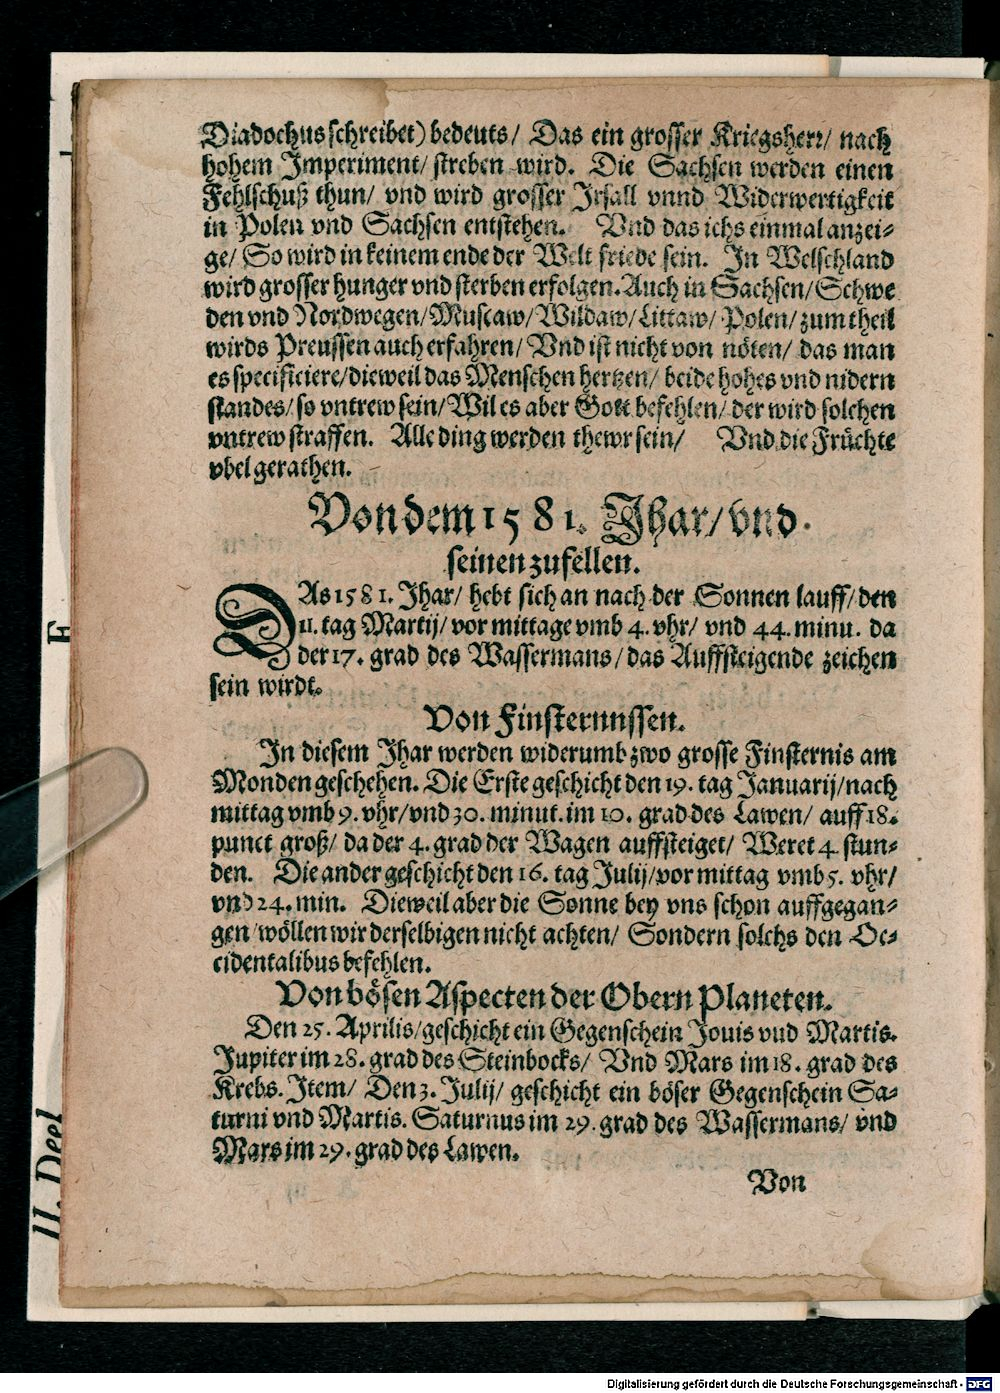 Diadochus schreibet) bedeuts/ Das ein grosser Kriegsherr/ nach
hohem Imperiment/ streben wird. Die Sachsen werden einen
Fehlschuß thun/ vnd wird grosser Irsall vnnd Widerwertigkeit
in Polen vnd Sachsen entstehen. Vnd das ichs einmal anzei-
ge/ So wird in keinem ende der Welt friede sein. In Welschland
wird grosser hunger vnd sterben erfolgen. Auch in Sachsen/ Schwe
den vnd Nordwegen/ Muscaw/ Wildaw/ Littaw/ Polen/ zum theil
wirds Preussen auch erfahren/ Vnd ist nicht von nöten/ das man
es specificiere/ dieweil das Menschen hertzen/ beide hohes vnd nidern
standes/ so vntrew sein/ Wil es aber Gott befehlen/ der wird solchen
vntrew straffen. Alle ding werden thewr sein/ Vnd die Früchte
vbel gerathen.
Von dem 1581. Jhar/ vnd
seinen zufellen.
DAs 1581. Jhar/ hebt sich an nach der Sonnen lauff/ den
11. tag Martij/ vor mittage vmb 4. vhr/ vnd 44. minu. da
der 17. grad des Wassermans/ das Auffsteigende zeichen
sein wirdt.
Von Finsternussen.
In diesem Jhar werden widerumb zwo grosse Finsternis am
Monden geschehen. Die Erste geschicht den 19. tag Januarij/ nach
mittag vmb 9. vhr/ vnd 30. minut. im 10. grad des Lawen/ auff 18.
punct groß/ da der 4. grad der Wagen auffsteiget/ Weret 4 stun-
den. Die ander geschicht den 16. tag Julij/ vor mittag vmb 5. vhr/
vnd 24. min. Dieweil aber die Sonne bey vns schon auffgegan-
gen/ wöllen wir derselbigen nicht achten/ Sondern solchs den Oc-
cidentalibus befehlen.
Von bösen Aspecten der Obern Planeten.
Den 25. Aprilis/ geschicht ein Gegenschein Jouis vud Martis.
Jupiter im 28. grad des Steinbocks/ Vnd Mars im 18. grad des
Krebs. Item/ Den 3. Julij/ geschicht ein böser Gegenschein Sa-
turni vnd Martis. Saturnus im 29. grad des Wassermans/ vnd
Mars im 29. grad des Lawen.
Von
II. Deel
Digitalisierung gefördert durch die Deutsche Forschungsgemeinschaft - DFG